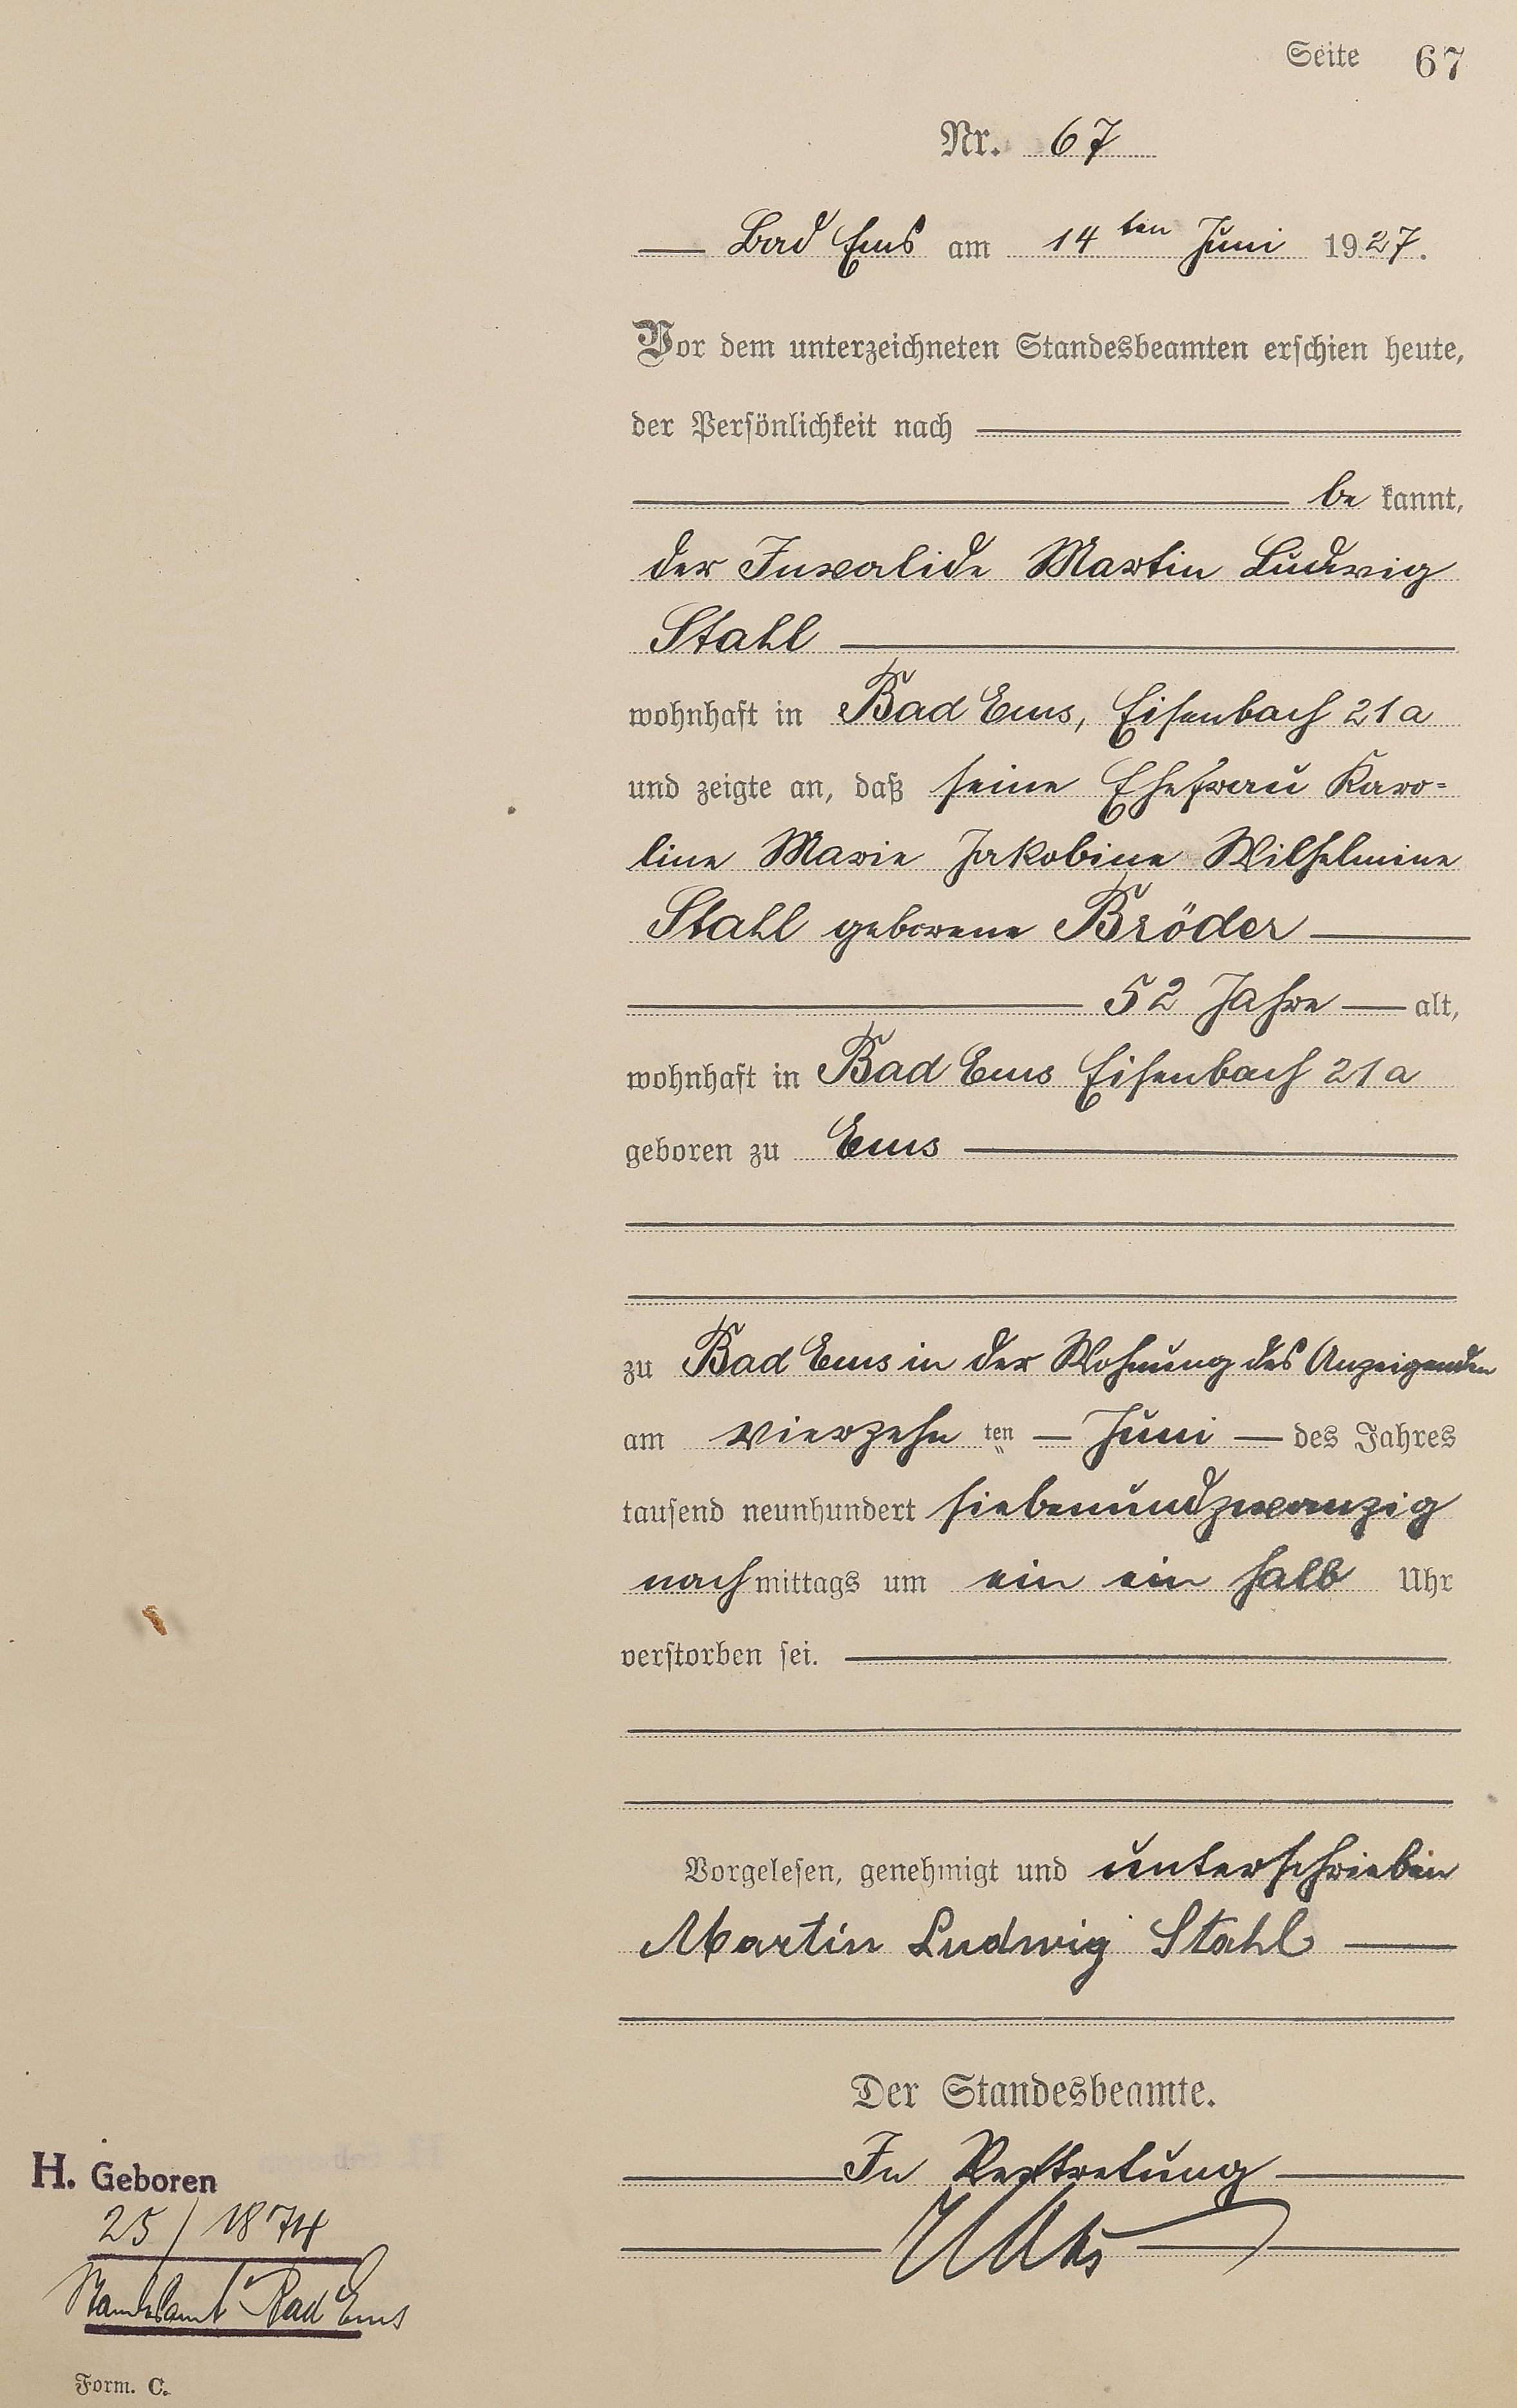 Seite 67
Nr. 67
Bad Ems am 14ten Juni 1927.
Vor dem unterzeichneten Standesbeamten erschien heute,
der Persönlichkeit nach
be kannt,
der Invalide Martin Ludwig
Stahl
wohnhaft in Bad Ems, Eisenbach 21a
und zeigte an, daß seine Ehefrau Karo-
line Marie Jakobine Wilhelmine
Stahl geborene Bröder
52 Jahre alt,
wohnhaft in Bad Ems Eisenbach 21a
geboren zu Ems
zu Bad Ems in der Wohnung des Anzeigenden
am vierzehn ten Juni des Jahres
tausend neunhundert siebenundzwanzig
nachmittags um ein ein halb Uhr
verstorben sei.
Vorgelesen, genehmigt und unterschrieben
Martin Ludwig Stahl
Der Standesbeamte.
In Vertretung
H. Geboren
25/1874
Standesamt Bad Ems
Form. C.